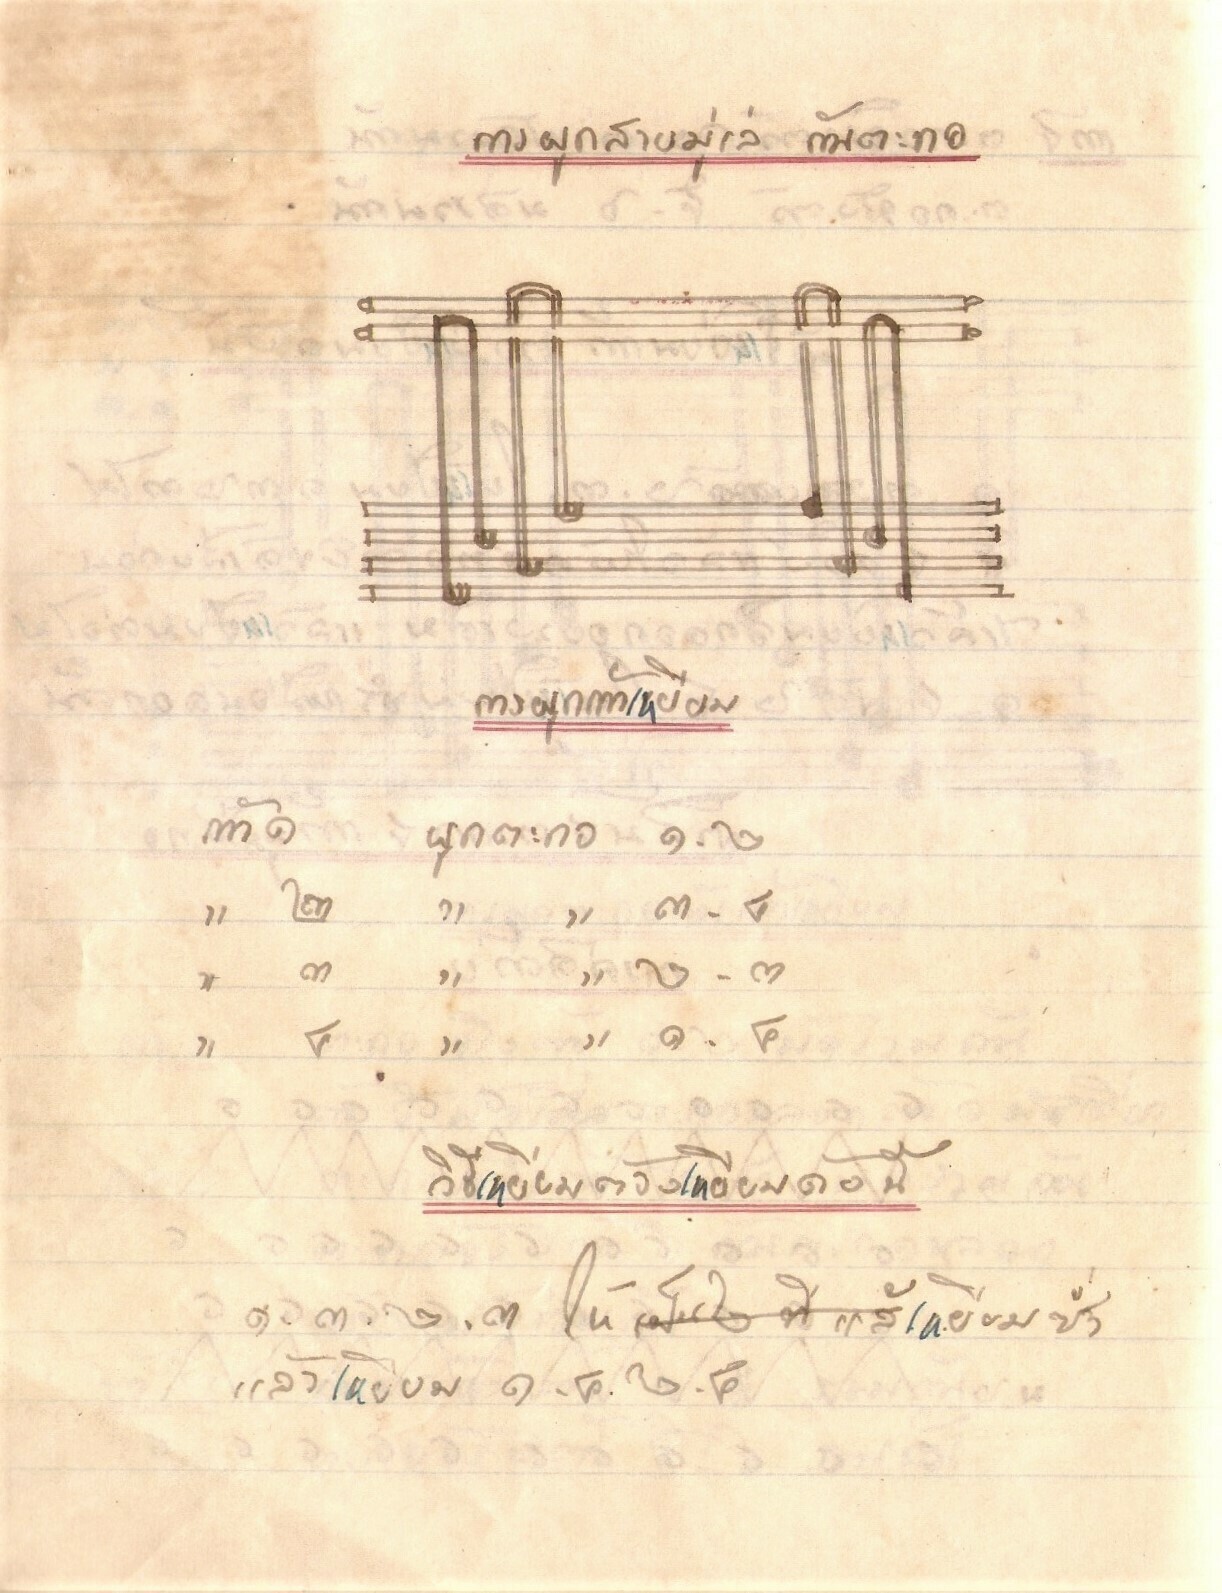 การผูกสายมู่เล่ กับตะกอ
การผูกกาเหยียบ
กาที่ ๑ ผูกตะกอ ๑.๒
" ๒ " " ๓ - ๔
" ๓ " " ๒ - ๓
" ๔ " " ๑ - ๔
วิธีเหยียบ เหยียบดังนี้
๑ ๓.๒.๓ ให้ แล้วเหยียบ
แล้วเหยียบ ๑.๔.๒.๔